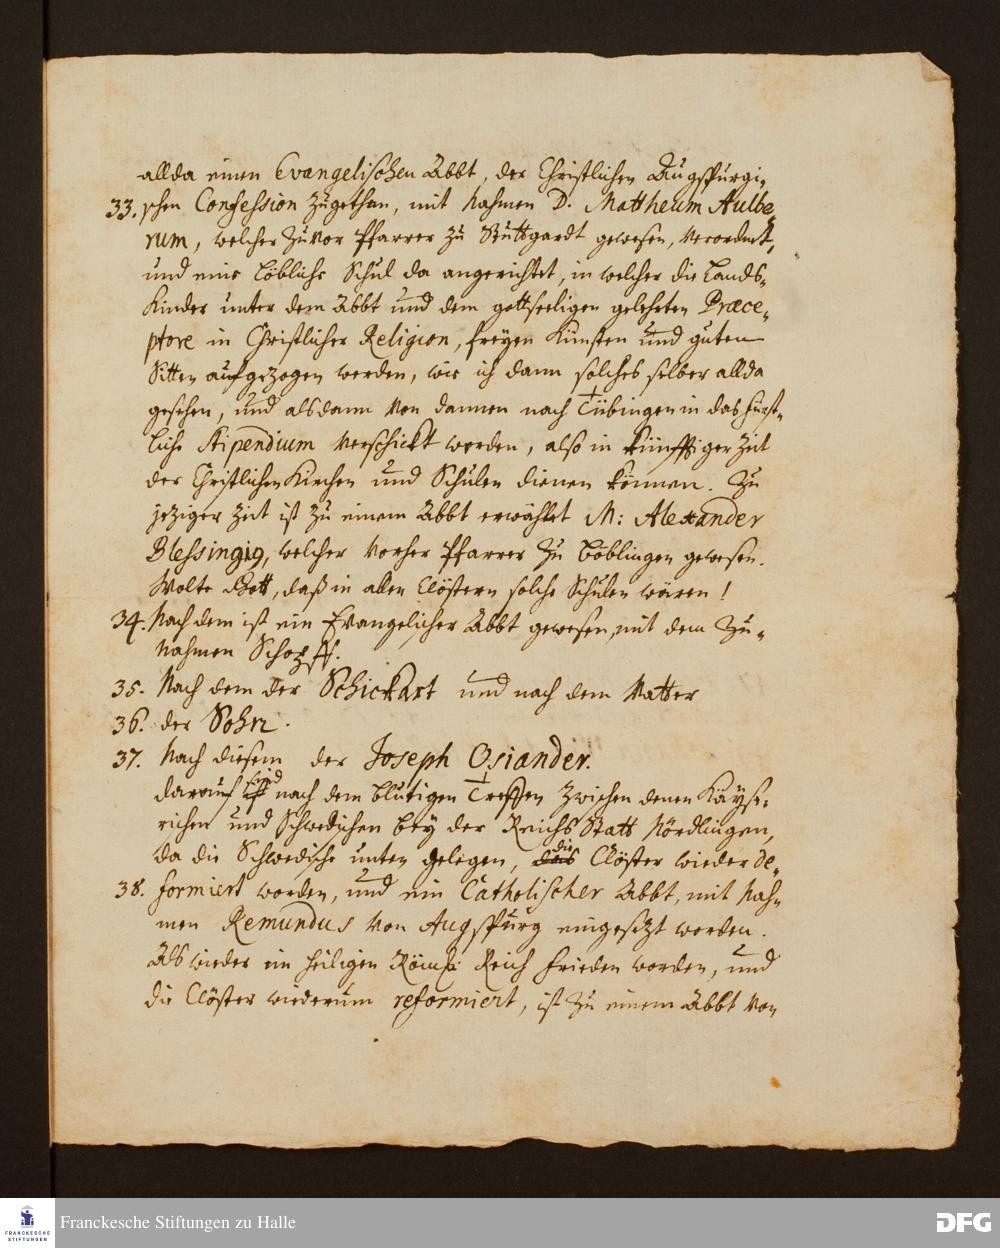 allda einen Evangelischen Abbt, der Christlichen Augspurgi-
33. schen Confession zugethan, mit Nahmen D. Mattheum Aulbe-
rum, welcher zuvor Pfarrer zu Stuttgardt gewesen, verordnet,
und eine Löbliche Schul da angerichtet, in welcher die Lands-
Kinder unter dem Abbt und dem gottseeligen gelehrten Præce-
ptore in Christlicher Religion, freyen Künsten und guten
Sitten aufgezogen werden, wie ich dann solches selber allda
gesehen, und alsdann von dannen nach Tübingen in das Fürst-
liche Stipendium verschickt werden, also in künfftiger Zeit
der Christlichen Kirchen und Schulen dienen können. Zu
jeziger Zeit ist zu einem Abbt erwählet M: Alexander
Blessingig, welcher vorher Pfarrer zu Böblingen gewesen.
Wolte Gott, daß in allen Clöstern solche Schulen wären!
34. Nach dem ist ein Evangelicher Abbt gewesen, mit dem Zu-
nahmen Schopff.
35. Nach dem der Schickart und nach dem Vatter
36. der Sohn.
37. Nach diesem der Joseph Osiander.
darauf sind nach dem blutigen Treffen zwischen denen Kayse-
rischen und Schwedischen bey der Reichs Statt Nördlingen,
da die Schwedische unten gelegen, die Clöster wieder de-
38. formiert worden, und ein Catholischer Abbt, mit Nah-
men Remundus von Augspurg eingesezt worden.
Als wieder im heiligen Römis: Reich Frieden worden, und
die Clöster wiederum reformiert, ist zu einem Abbt von
FRANCKESCHE
STIFTUNGEN
Franckesche Stiftungen zu Halle
DFG